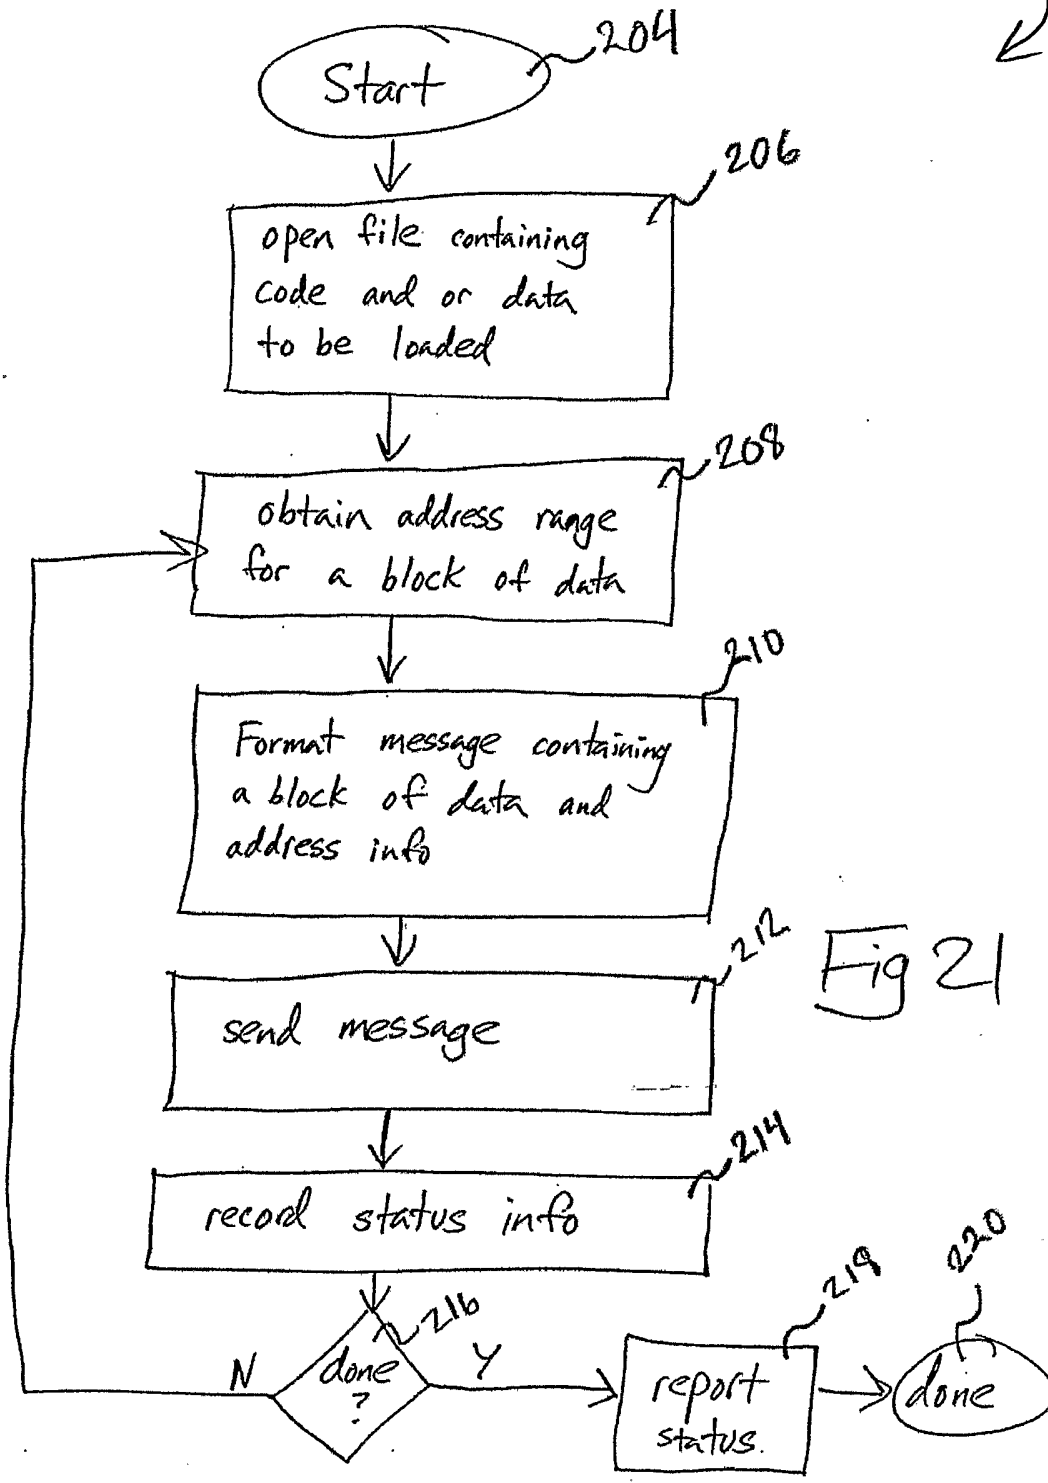 204
Start
206
open file containing
code and or data
to be loaded
208
obtain address range
for a block of data
210
Format message containing
a block of data and
address info
212
Fig 21
send message
214
record status info
216
done
?
N
Y
218
report
status.
220
done